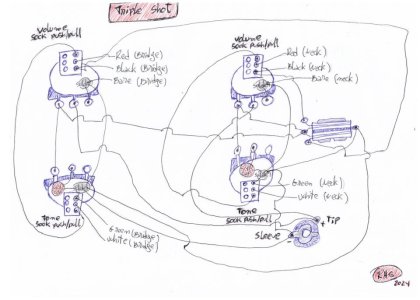 Triple shot
volume
500k push/pull
Red (Bridge)
Black (Bridge)
Bare (Bridge)
volume
500k push/pull
Red (neck)
Black (neck)
Bare (neck)
Tone
500k push/pull
Green (Bridge)
white (Bridge)
Tone
500k push/pull
Green (neck)
white (neck)
+ Tip
Sleeve -
2024